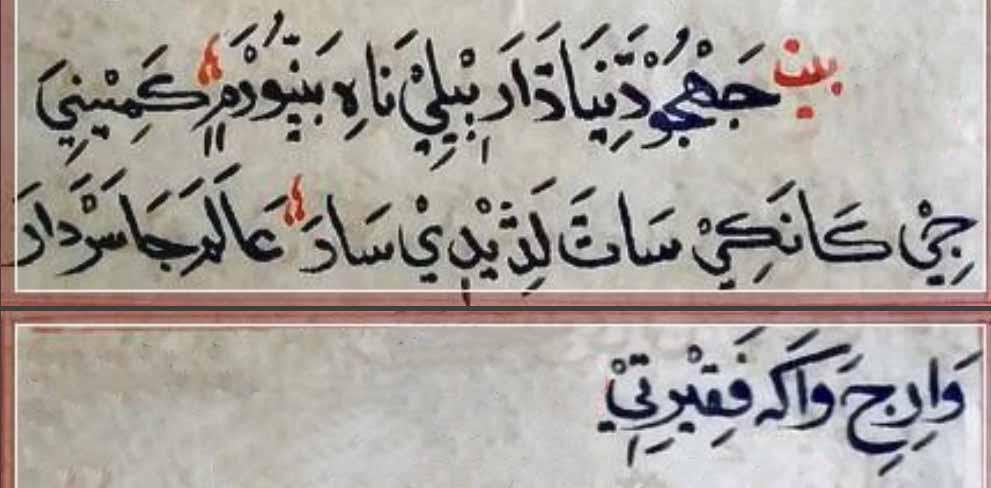 بيت جَهْجُو دِّنِيَادَارَ بِيْلِيْ نَاهِ بَنِيّوُدَمٍ كَمِيْنِيَ
جِيْ كَانَكِيْ سَاتَ لَدِّيْدِيْ سَادَ عَالَمَ جَا سَرْدَارَ
وَارِجَ وَاكَه فَقِيْرَتِيْ